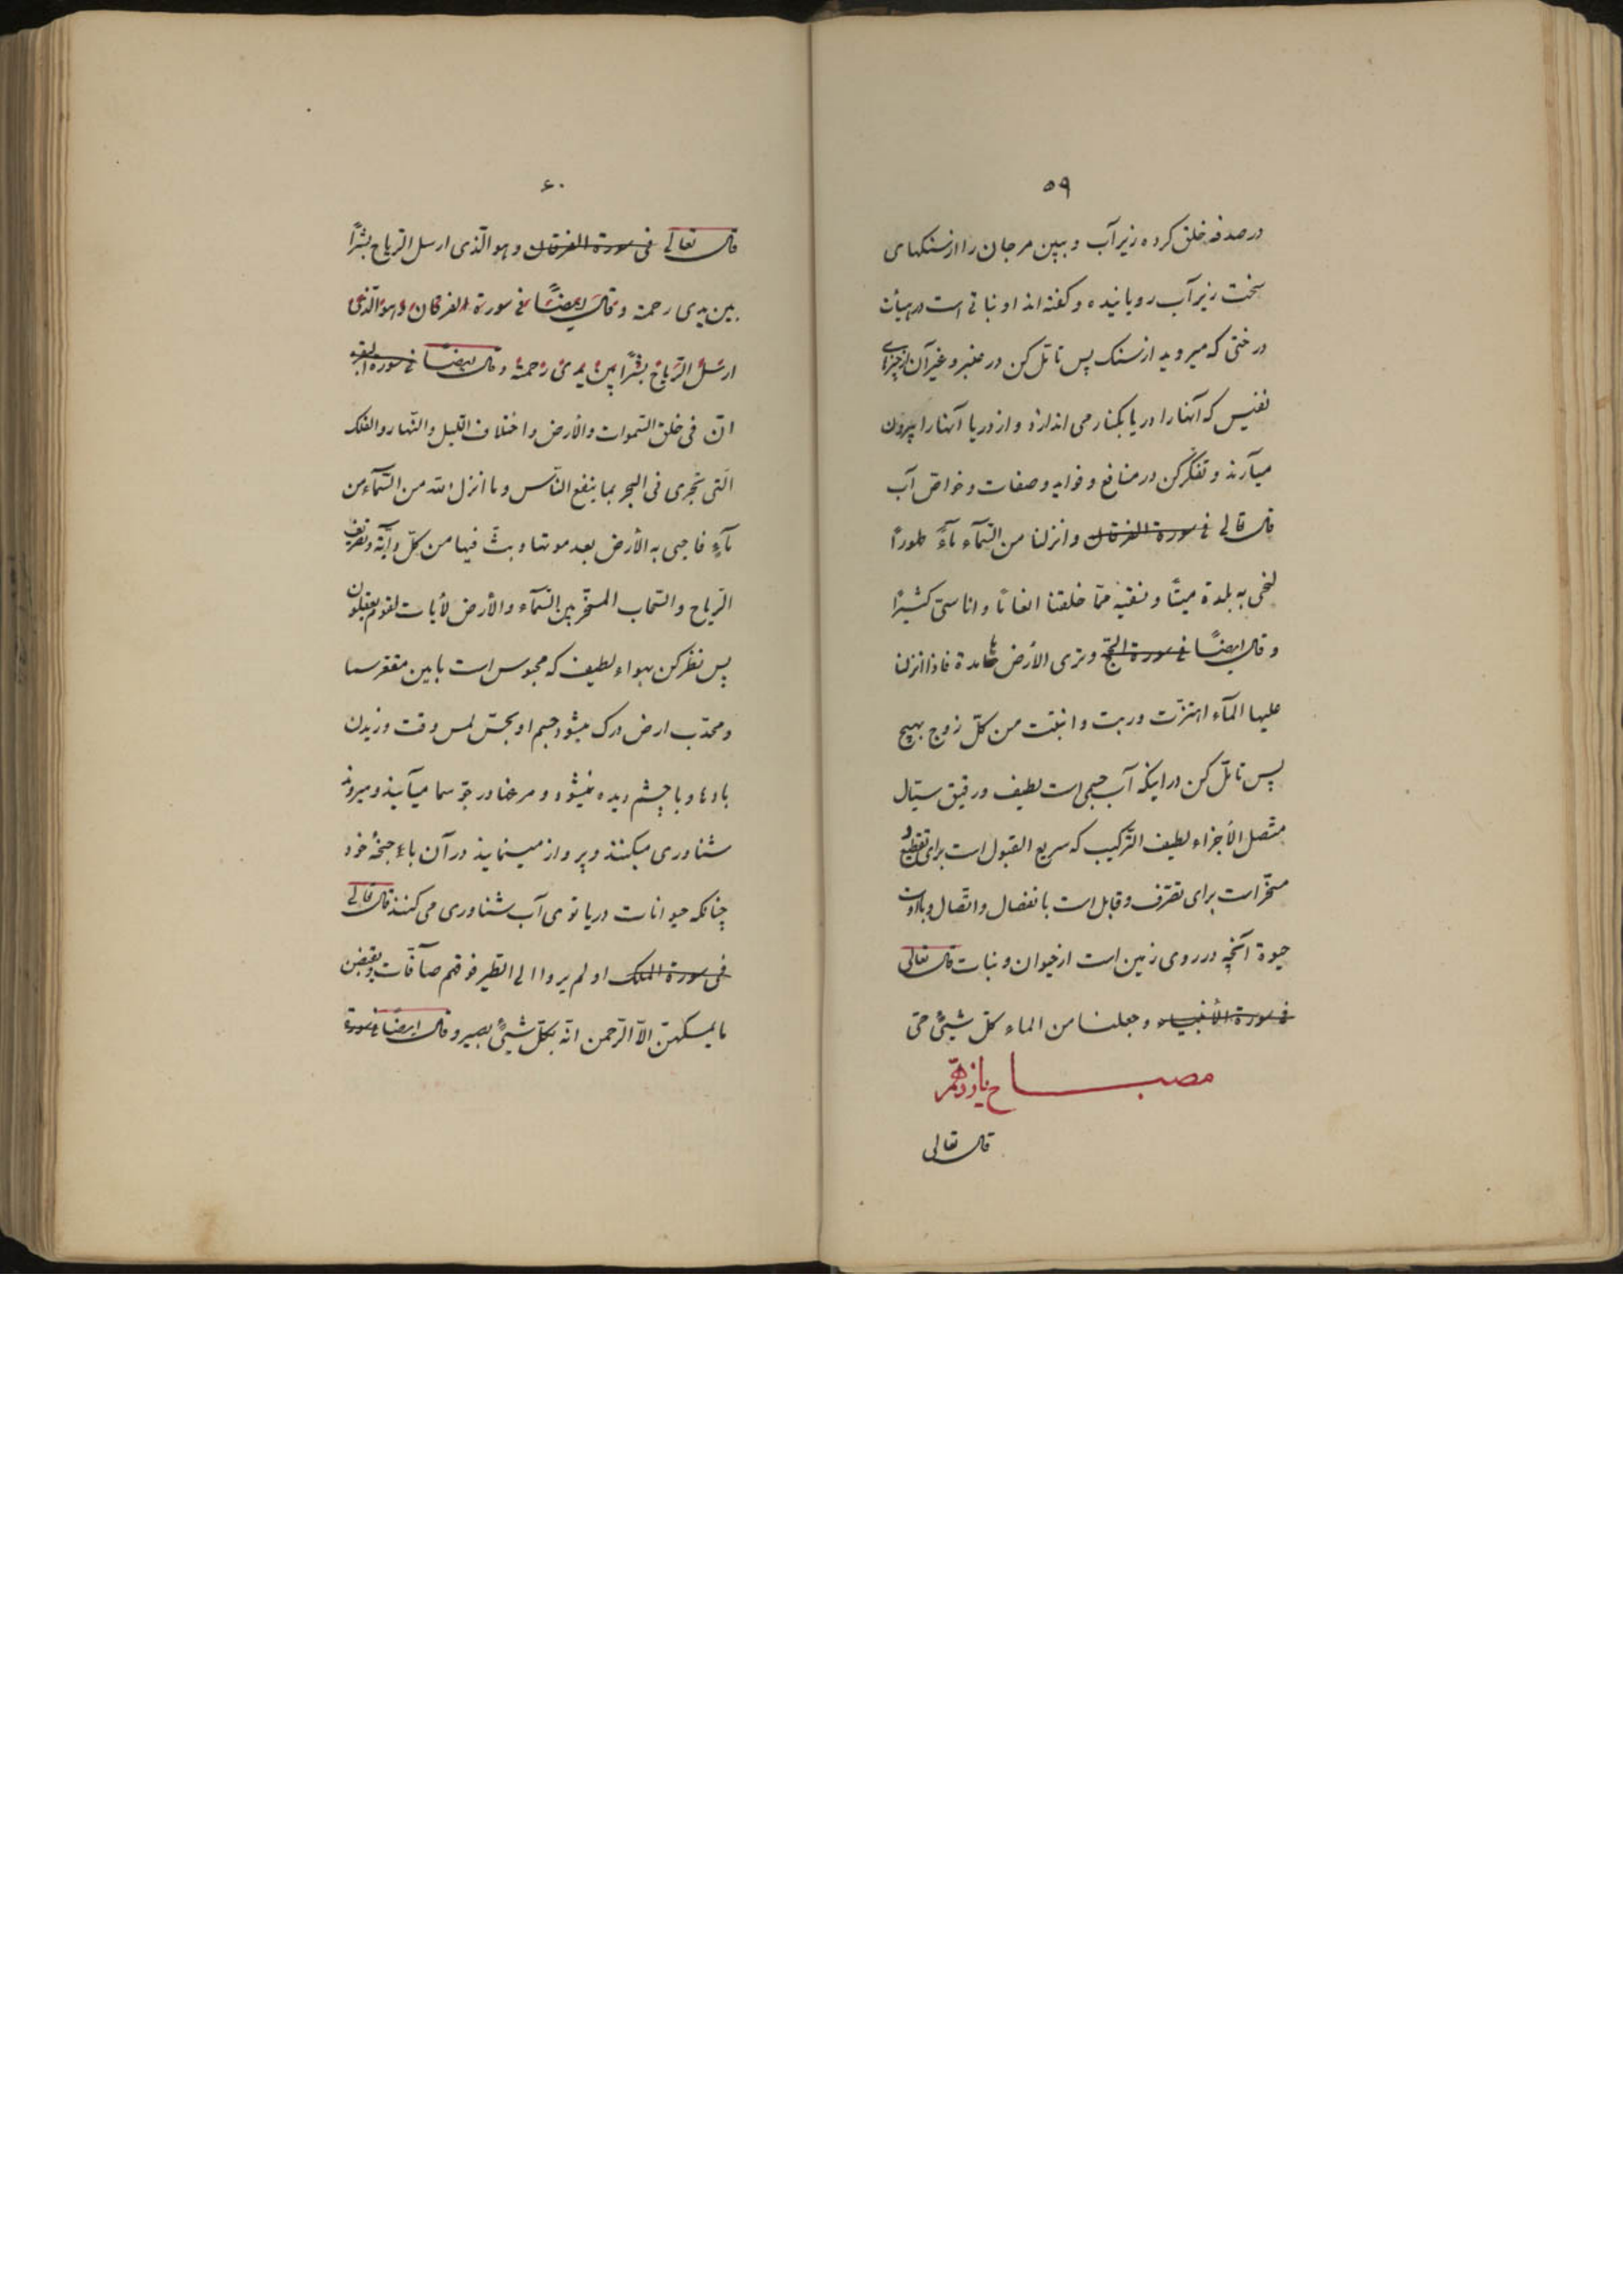 ۵۹
در صدفه خلق کرده زیر آب و ببین مرجان را از سنکهای
سخت زیر آب رویانیده و کفته اند او نباتی است در هیأت
درختی که میروید از سنک پس تأمّل کن در عنبر و غیر آن از چیزهای
نفیس که آنها را دریا بکنار می اندازد و از دریا آنها را بیرون
میآرند و تفکّر کن در منافع و فواید و صفات و خواصّ آب
قال تعالی فی سورة الفرقان و انزلنا من السّمآء مآءً طهوراً
لنحی به بلدة میتًا و نسقیه ممّا خلقنا انعامًا و اناسیّ کثیرًا
و قال ایضًا فی سورة الحجّ و تری الأرض هامدة فاذا انزلنا
علیها المآء اهتزّت و ربت و انبتت من کلّ زوج بهیج
پس تأمّل کن در اینکه آب جسمی است لطیف و رقیق سیّال
متّصل الأجزاء لطیف التّرکیب که سریع القبول است برای تقطیع و
مسخّر است برای تصرّف و قابل است بانفصال و اتّصال و باوست
حیوة آنچه در روی زمین است از حیوان و نبات قال تعالی
فی سورة الأنبیاء و جعلنا من الماء کلّ شیئ حی
مصباح یازدهم
قال تعالی
۶۰
قال تعالی فی سورة الفرقان و هو الّذی ارسل الرّیاح بشراً
بین یدی رحمته و قال ایضًا فی سورة الفرقان و هو الّذی
ارسل الرّیاح بشرًا بین یدی رحمته و قال ایضًا فی سورة البقره
انّ فی خلق السّموات و الأرض و اختلاف اللّیل و النّهار و الفلک
الّتی تجری فی البحر بما ینفع النّاس و ما انزل الله من السّمآء من
مآءٍ فاحیی به الأرض بعد موتها و بثّ فیها من کلّ دابّة و تصریف
الرّیاح و السّحاب المسخّر بین السّمآء و الأرض لأیات لقوم یعقلون
پس نظر کن بهواء لطیف که محبوس است مابین مقعّر سما
و محدّب ارض درک میشود جسم او بحسّ لمس وقت وزیدن
بادها و با چشم دیده نمیشود و مرغها در جوّ سما میآیند و میروند
شناوری میکنند و پرواز مینمایند در آن باجنحهٔ خود
چنانکه حیوانات دریا توی آب شناوری می کنند قال تعالی
فی سورة الملک اولم یروا الی الطّیر فوقهم صآفّات و یقبضن
ما یمسکهنّ الّا الرّحمن انّه بکلّ شیئ بصیر و قال ایضًا فی سورة